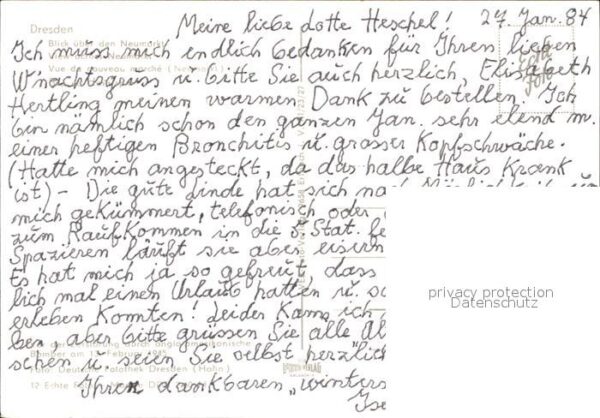 Meine liebe Lotte Heschel! 27 Jan. 84
Dresden
Ich muss mich endlich bedanken für Ihren lieben
Blick über den Neumarkt
W'nachtsgruss u. bitte Sie auch herzlich, Elisabeth
Vue du nouveau marché
Hertling meinen warmen Dank zu bestellen. Ich
bin nämlich schon den ganzen Jan. sehr elend m.
einer heftigen Bronchitis u. grosser Kopfschwäche.
(Hatte mich angesteckt, da das halbe Haus krank
ist) - Die gute Linde hat sich nach
mich gekümmert, telefonisch oder
zum Raufkommen in die 3 Stat.
Spazieren läuft sie aber eisern
Es hat mich ja so gefreut, dass
lich mal einen Urlaub hatten u.
erleben konnten! Leider kam ich
ben, aber bitte grüssen Sie alle
Zerstörung durch anglo-amerikanische
Bomber am 13. Februar 1945
schen u. seien Sie selbst herzlich
Foto: Deutsche Fotothek Dresden (Hahn)
Ihren dankbaren „winters
12 Echte
privacy protection
Datenschutz